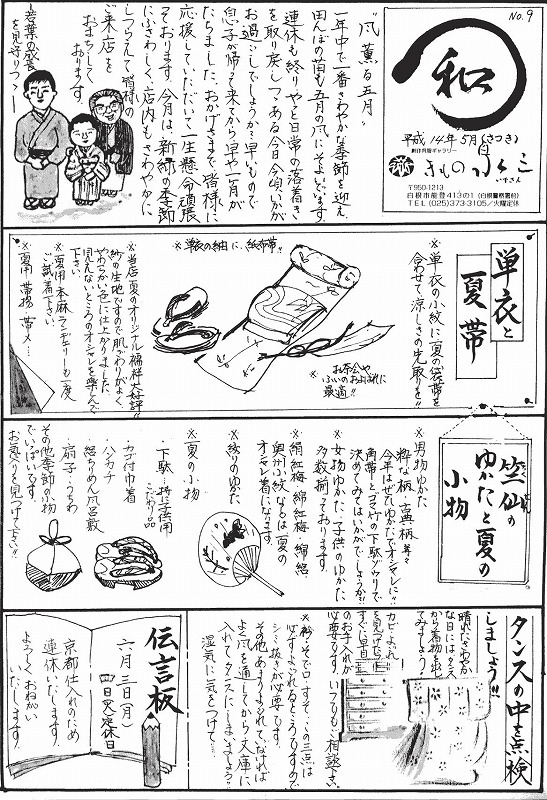 No.9
和
平成14年5月(さつき)
創作呉服ギャラリー
きもの
〒950-1213
白根市能登413の1(白根警察署前)
TEL(025)373-3105/火曜定休
"風薫る五月"
一年中で一番さわやかな季節を迎え
田んぼの苗も五月の風にそよいでます。
連休も終りやっと日常の落着き
を取り戻しつつある今日今頃いかが
お過ごしでしょうか?早いもので
息子が帰って来てから早や一月が
たちました。おかげさまで皆様に
応援していただいて一生懸命頑張
っております。今月は、新緑の季節
にふさわしく、店内もさわやかに
しつらえて皆様の
ご来店を
おまちして
おります。
―若葉の成長
を見守りつつ―
単衣と
夏帯
※単衣の小紋に夏の袋帯を
合わせて、涼しさの先取りを!!
※お茶会や
ふいのおよばれに
最適!!
※単衣の紬に、紙布帯!!
※当店夏のオリジナル襦袢大好評!!
紗の生地ですので肌ざわりがよく、
やわらかい色に仕上がりました。
見えないところのオシャレを楽しんで
下さい。
※夏用本麻アンダーも一度
ご試着下さい。
※夏用 帯揚 帯〆…
竺仙の
ゆかたと夏の
小物
※男物ゆかた
粋な柄、古典柄等々
今年はぜひゆかたでオシャレに!!
角帯とゴマ竹の下駄ゾウリで
決めてみてはいかがでしょうか!?
※女物ゆかた、子供のゆかた
多数揃っております。
※絹紅梅 綿紅梅 綿絽
奥州小紋などは夏の
オシャレ着になります。
※絞りのゆかた
※夏の小物
・下駄…
こだわり品
・カゴ付巾着
・ハンカチ
・絽ちりめん風呂敷
・扇子・うちわ
その他季節の物
でいっぱいです。
お気に入りを見つけて下さい!!
タンスの中を点検
しましょう!!
晴れたさわやか
な日にはタンス
から着物を出し
てみましょう!
カビ、よごれ
を見つけたら
すぐに早目
のお手入れが
必要です。いつでもご相談下さい。
※衿・そで口・すそ…の三点は
必ずよごれるところですので
シミ抜きが必要です。
その他あまりよごれてなければ
よく風を通してから文庫に
入れてタンスにしまいましょう!!
湿気に気をつけて…
伝言板
六月三日(月)
四日(火)定休日
京都仕入れのため
連休いたします。
よろしくおねがい
いたします。